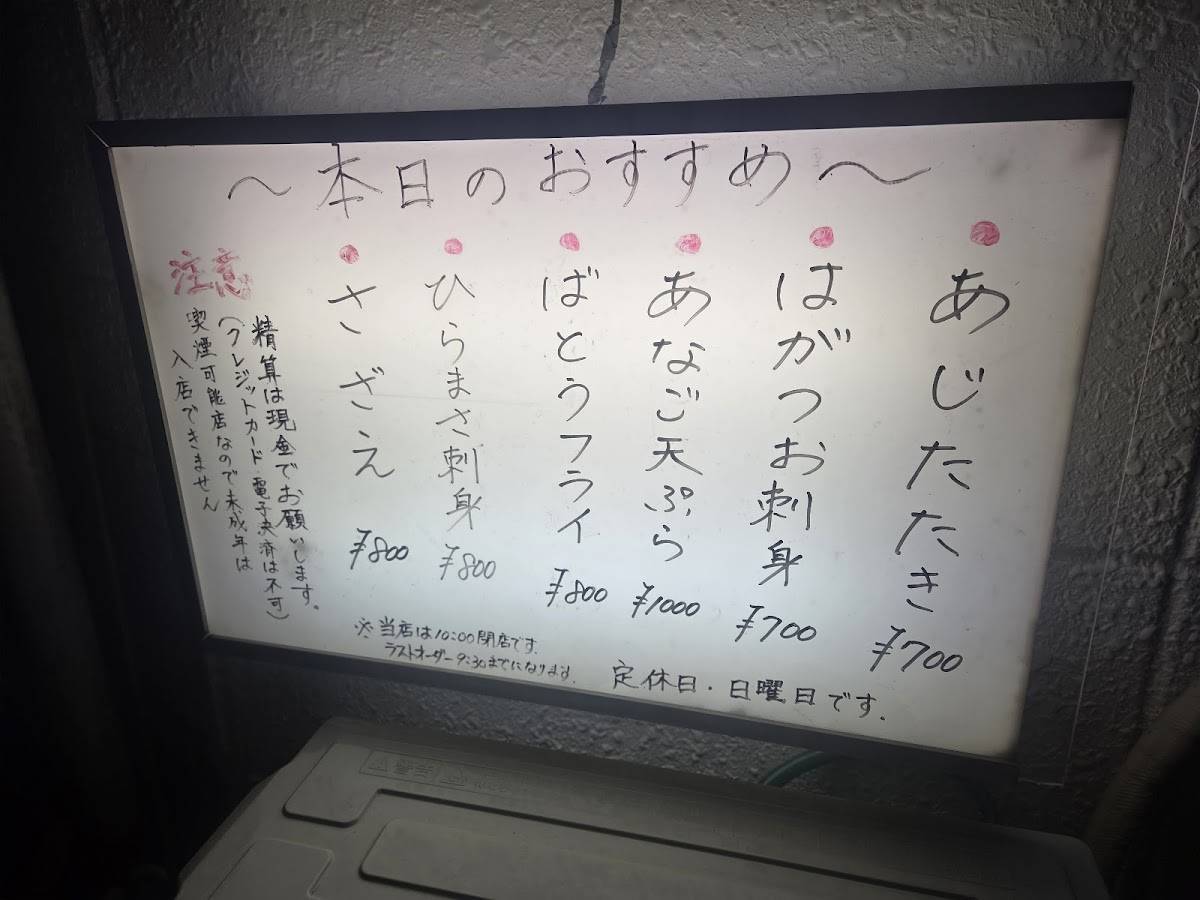 ～本日のおすすめ～
● あじたたき ¥700
● はがつお刺身 ¥700
● あなご天ぷら ¥1000
● ばとうフライ ¥800
● ひらまさ刺身 ¥800
● さざえ ¥800
注意
精算は現金でお願いします。
(クレジットカード電子決済は不可)
喫煙可能店なので未成年は
入店できません
※当店は10:00閉店です.
ラストオーダー9:30までになります.
定休日・日曜日です.